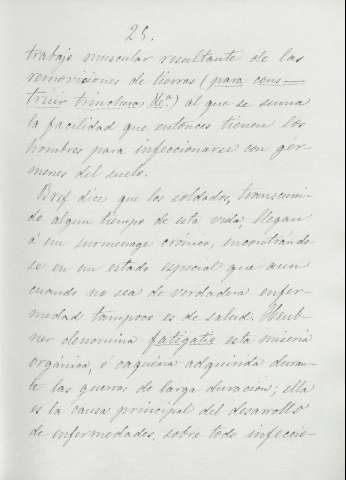 25.
trabajo muscular resultante de las
remociones de tierras (para cons-
truir trincheras &ª) al que se suma
la facilidad que entonces tienen los
hombres para infeccionarse con gér-
menes del suelo.
Bref dice que los soldados, transcurri-
do algun tiempo de esta vida, llegan
á un surmenage crónico, encontrándo-
se en un estado especial que aun
cuando no sea de verdadera enfer-
medad tampoco es de salud. Heub-
ner denomina fatigatio esta miseria
orgánica, ó caquexia adquirida duran-
te las guerras de larga duración; ella
es la causa principal del desarrollo
de enfermedades, sobre todo infeccio-